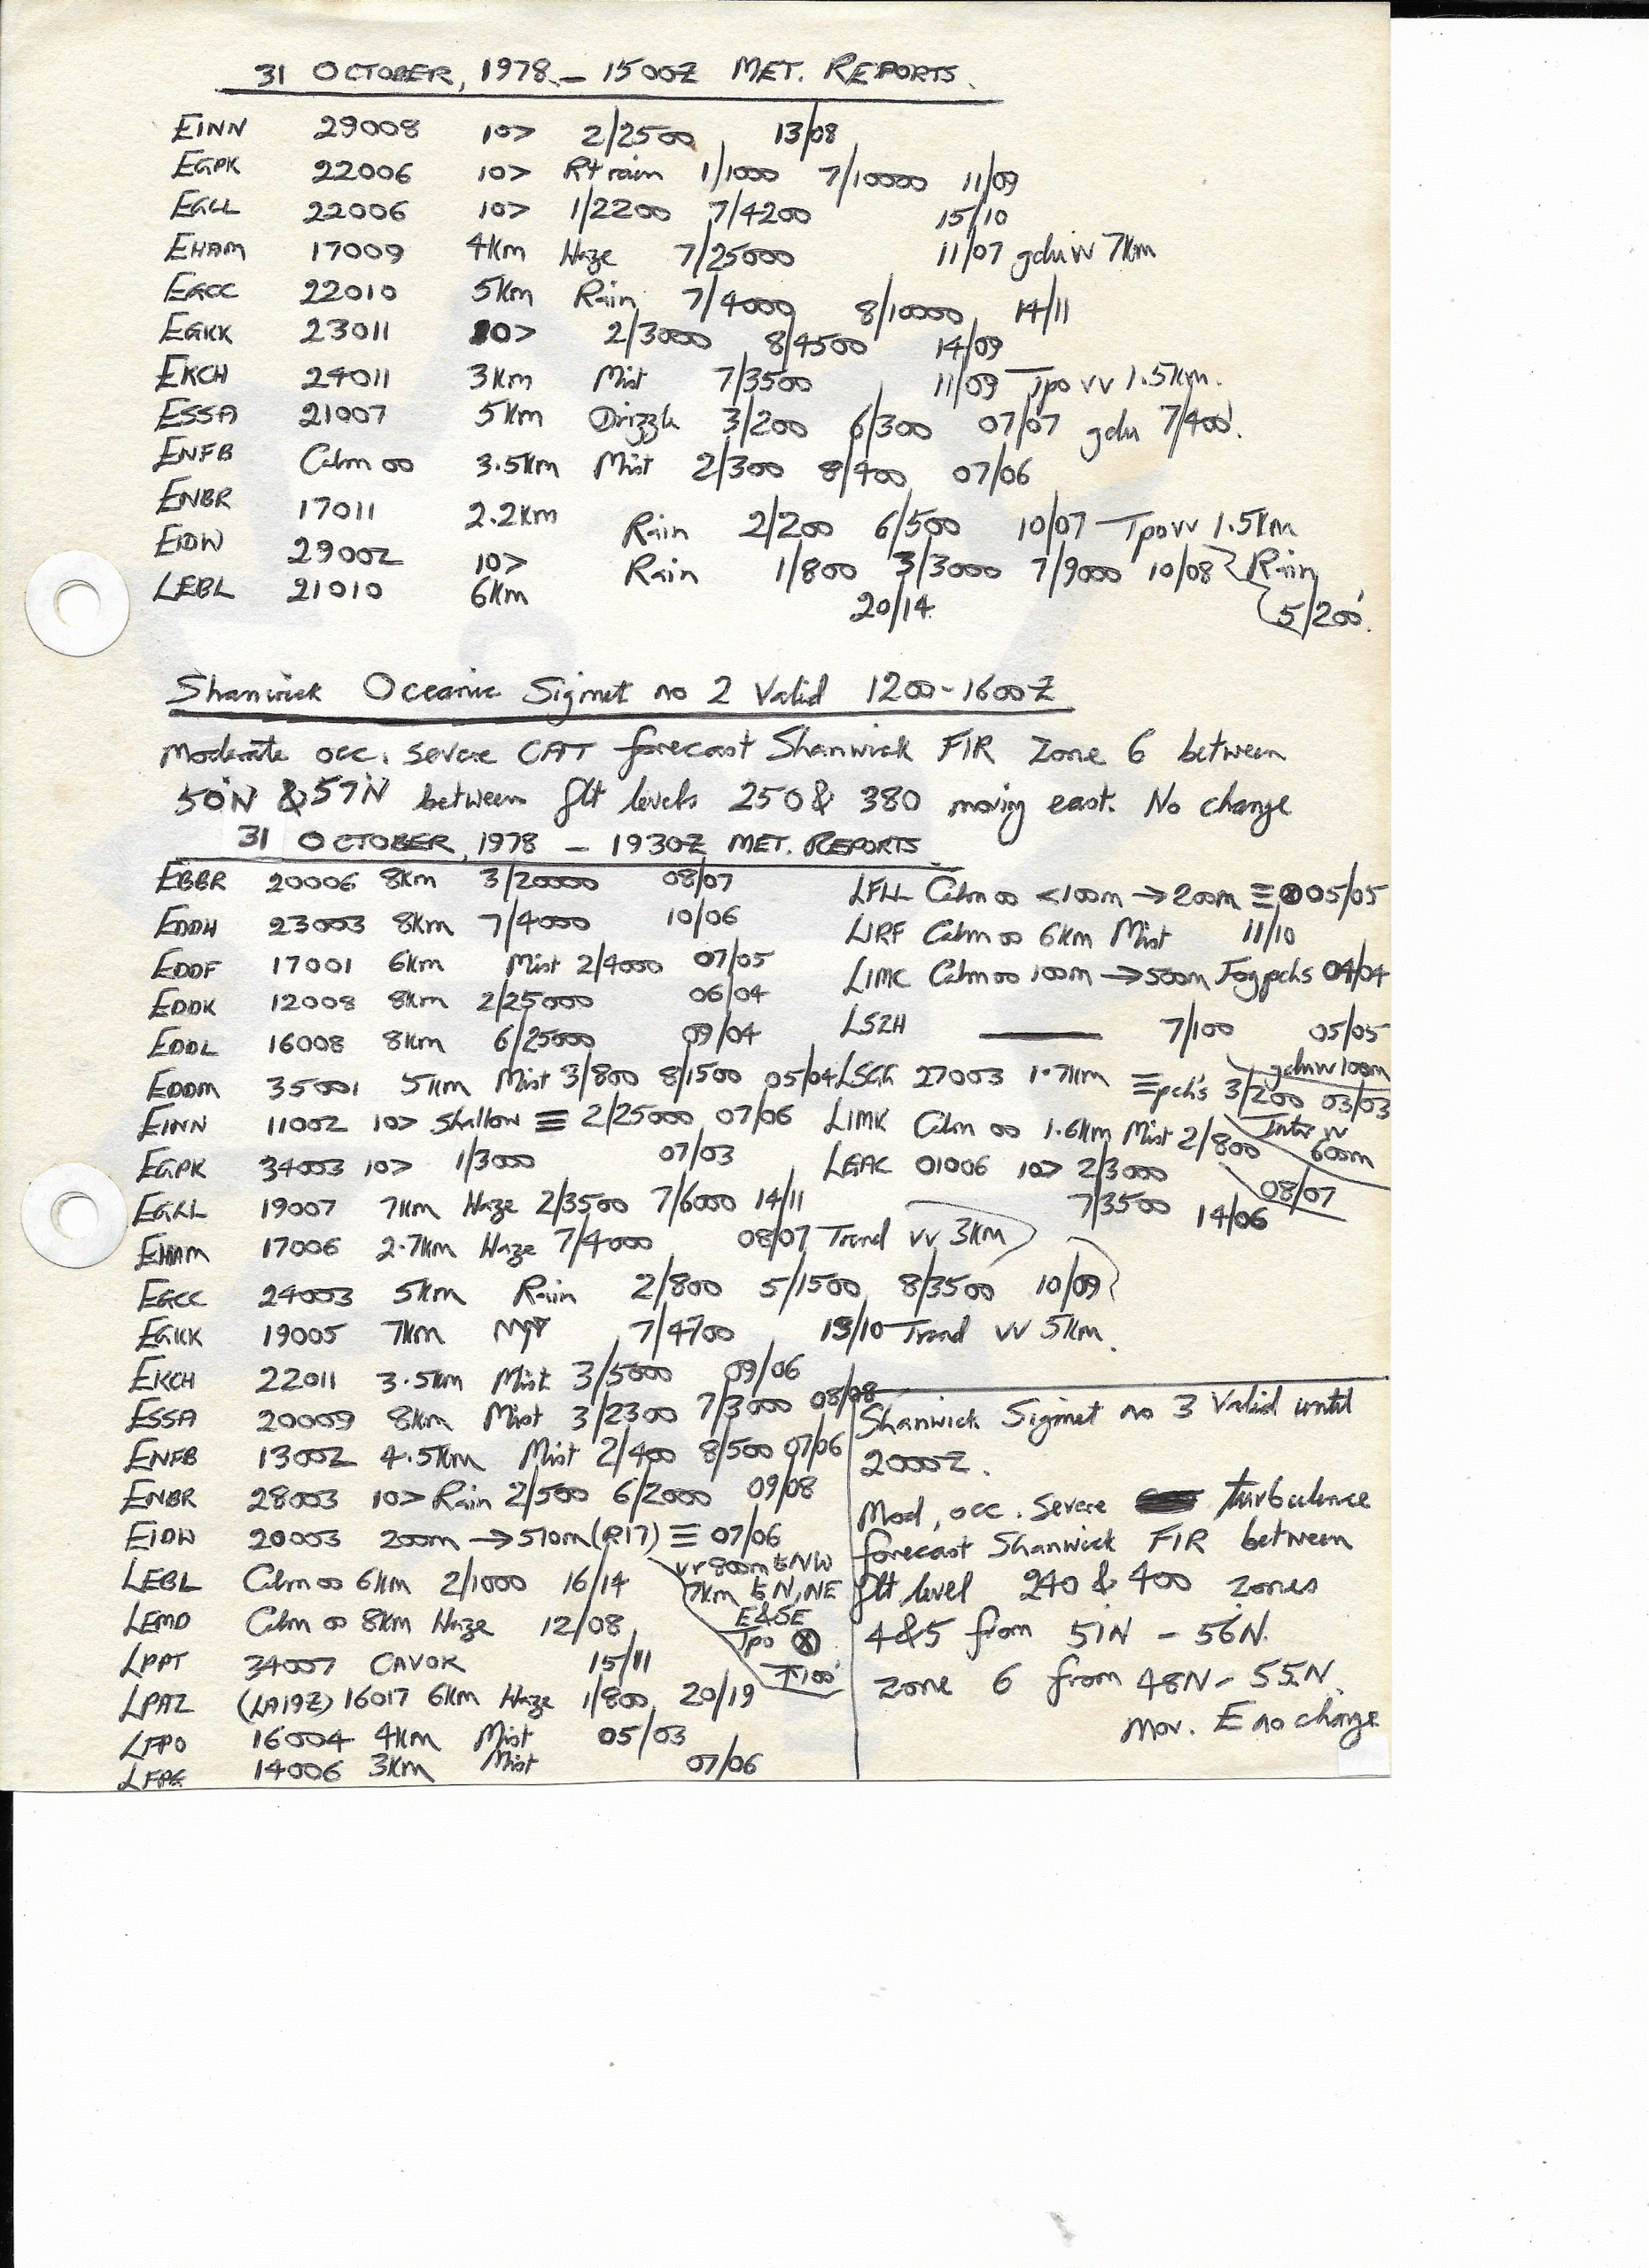 31 OCTOBER, 1978 - 1500Z MET. REPORTS.
EINN 29008 10> 2/2500 13/08
EGPK 22006 10> R+ rain 1/1000 7/10000 11/09
EGLL 22006 10> 1/2200 7/4200 15/10
EHAM 17009 4Km Haze 7/25000 11/07 gdu vv 7Km
EGCC 22010 5Km Rain 7/4000 8/10000 14/11
EGKK 23011 10> 2/3000 8/4500 14/09
EKCH 24011 3Km Mist 7/3500 11/09 Tpo vv 1.5Km.
ESSA 21007 5Km Drizzle 3/200 6/300 07/07 gdu 7/400'.
ENFB Calm 00 3.5Km Mist 2/300 8/400 07/06
ENBR 17011 2.2Km Rain 2/200 6/500 10/07 Tpo vv 1.5Km
EIDW 29002 10> Rain 1/800 3/3000 7/9000 10/08 Rain 5/200'.
LEBL 21010 6Km 20/14
Shanwick Oceanic Sigmet no 2 Valid 1200-1600Z
Moderate occ. severe CAT forecast Shanwick FIR Zone 6 between
50°N & 57°N between flt levels 250 & 380 moving east. No change
31 OCTOBER, 1978 - 1930Z MET. REPORTS
EBBR 20006 8Km 3/20000 08/07
EDDH 23003 8Km 7/4000 10/06
EDDF 17001 6Km Mist 2/4000 07/05
EDDK 12008 8Km 2/25000 06/04
EDDL 16008 8Km 6/25000 09/04
EDDM 35001 5Km Mist 3/800 8/1500 05/04
EINN 11002 10> Shallow ≡ 2/25000 07/06
EGPK 34003 10> 1/3000 07/03
EGLL 19007 7Km Haze 2/3500 7/6000 14/11
EHAM 17006 2.7Km Haze 7/4000 08/07 Trend vv 3Km
EGCC 24003 5Km Rain 2/800 5/1500 8/3500 10/09
EGKK 19005 7Km 7/4700 13/10 Trend vv 5Km.
EKCH 22011 3.5Km Mist 3/5000 09/06
ESSA 20009 8Km Mist 3/2300 7/3000 08/08
ENFB 13002 4.5Km Mist 2/400 8/500 07/06
ENBR 28003 10> Rain 2/500 6/2000 09/08
EIDW 20003 200m → 510m (R17) ≡ 07/06
vv 800m to NW
7Km to N, NE
E&SE
Tpo ⊗
↑100'
LEBL Calm 00 6Km 2/1000 16/14
LEMD Calm 00 8Km Haze 12/08
LPPT 34007 CAVOK 15/11
LPAZ (LA19Z) 16017 6Km Haze 1/800 20/19
LFPO 16004 4Km Mist 05/03
LFPG 14006 3Km Mist 07/06
LFLL Calm 00 <100m → 200m ≡ ⊗ 05/05
LIRF Calm 00 6Km Mist 11/10
LIMC Calm 00 100m → 500m Fog pchs 04/04
LSZH 7/100 05/05
gdu vv 100m
LSGG 27003 1.7Km ≡ pch's 3/200 03/03
Inter vv
600m
LIMK Calm 00 1.6Km Mist 2/800
08/07
LGAC 01006 10> 2/3000
7/3500 14/06
Shanwick Sigmet no 3 Valid until
2000Z.
Mod, occ. severe turbulence
forecast Shanwick FIR between
flt level 240 & 400 zones
4&5 from 51°N - 56°N.
Zone 6 from 48N - 55N.
Mov. E no change